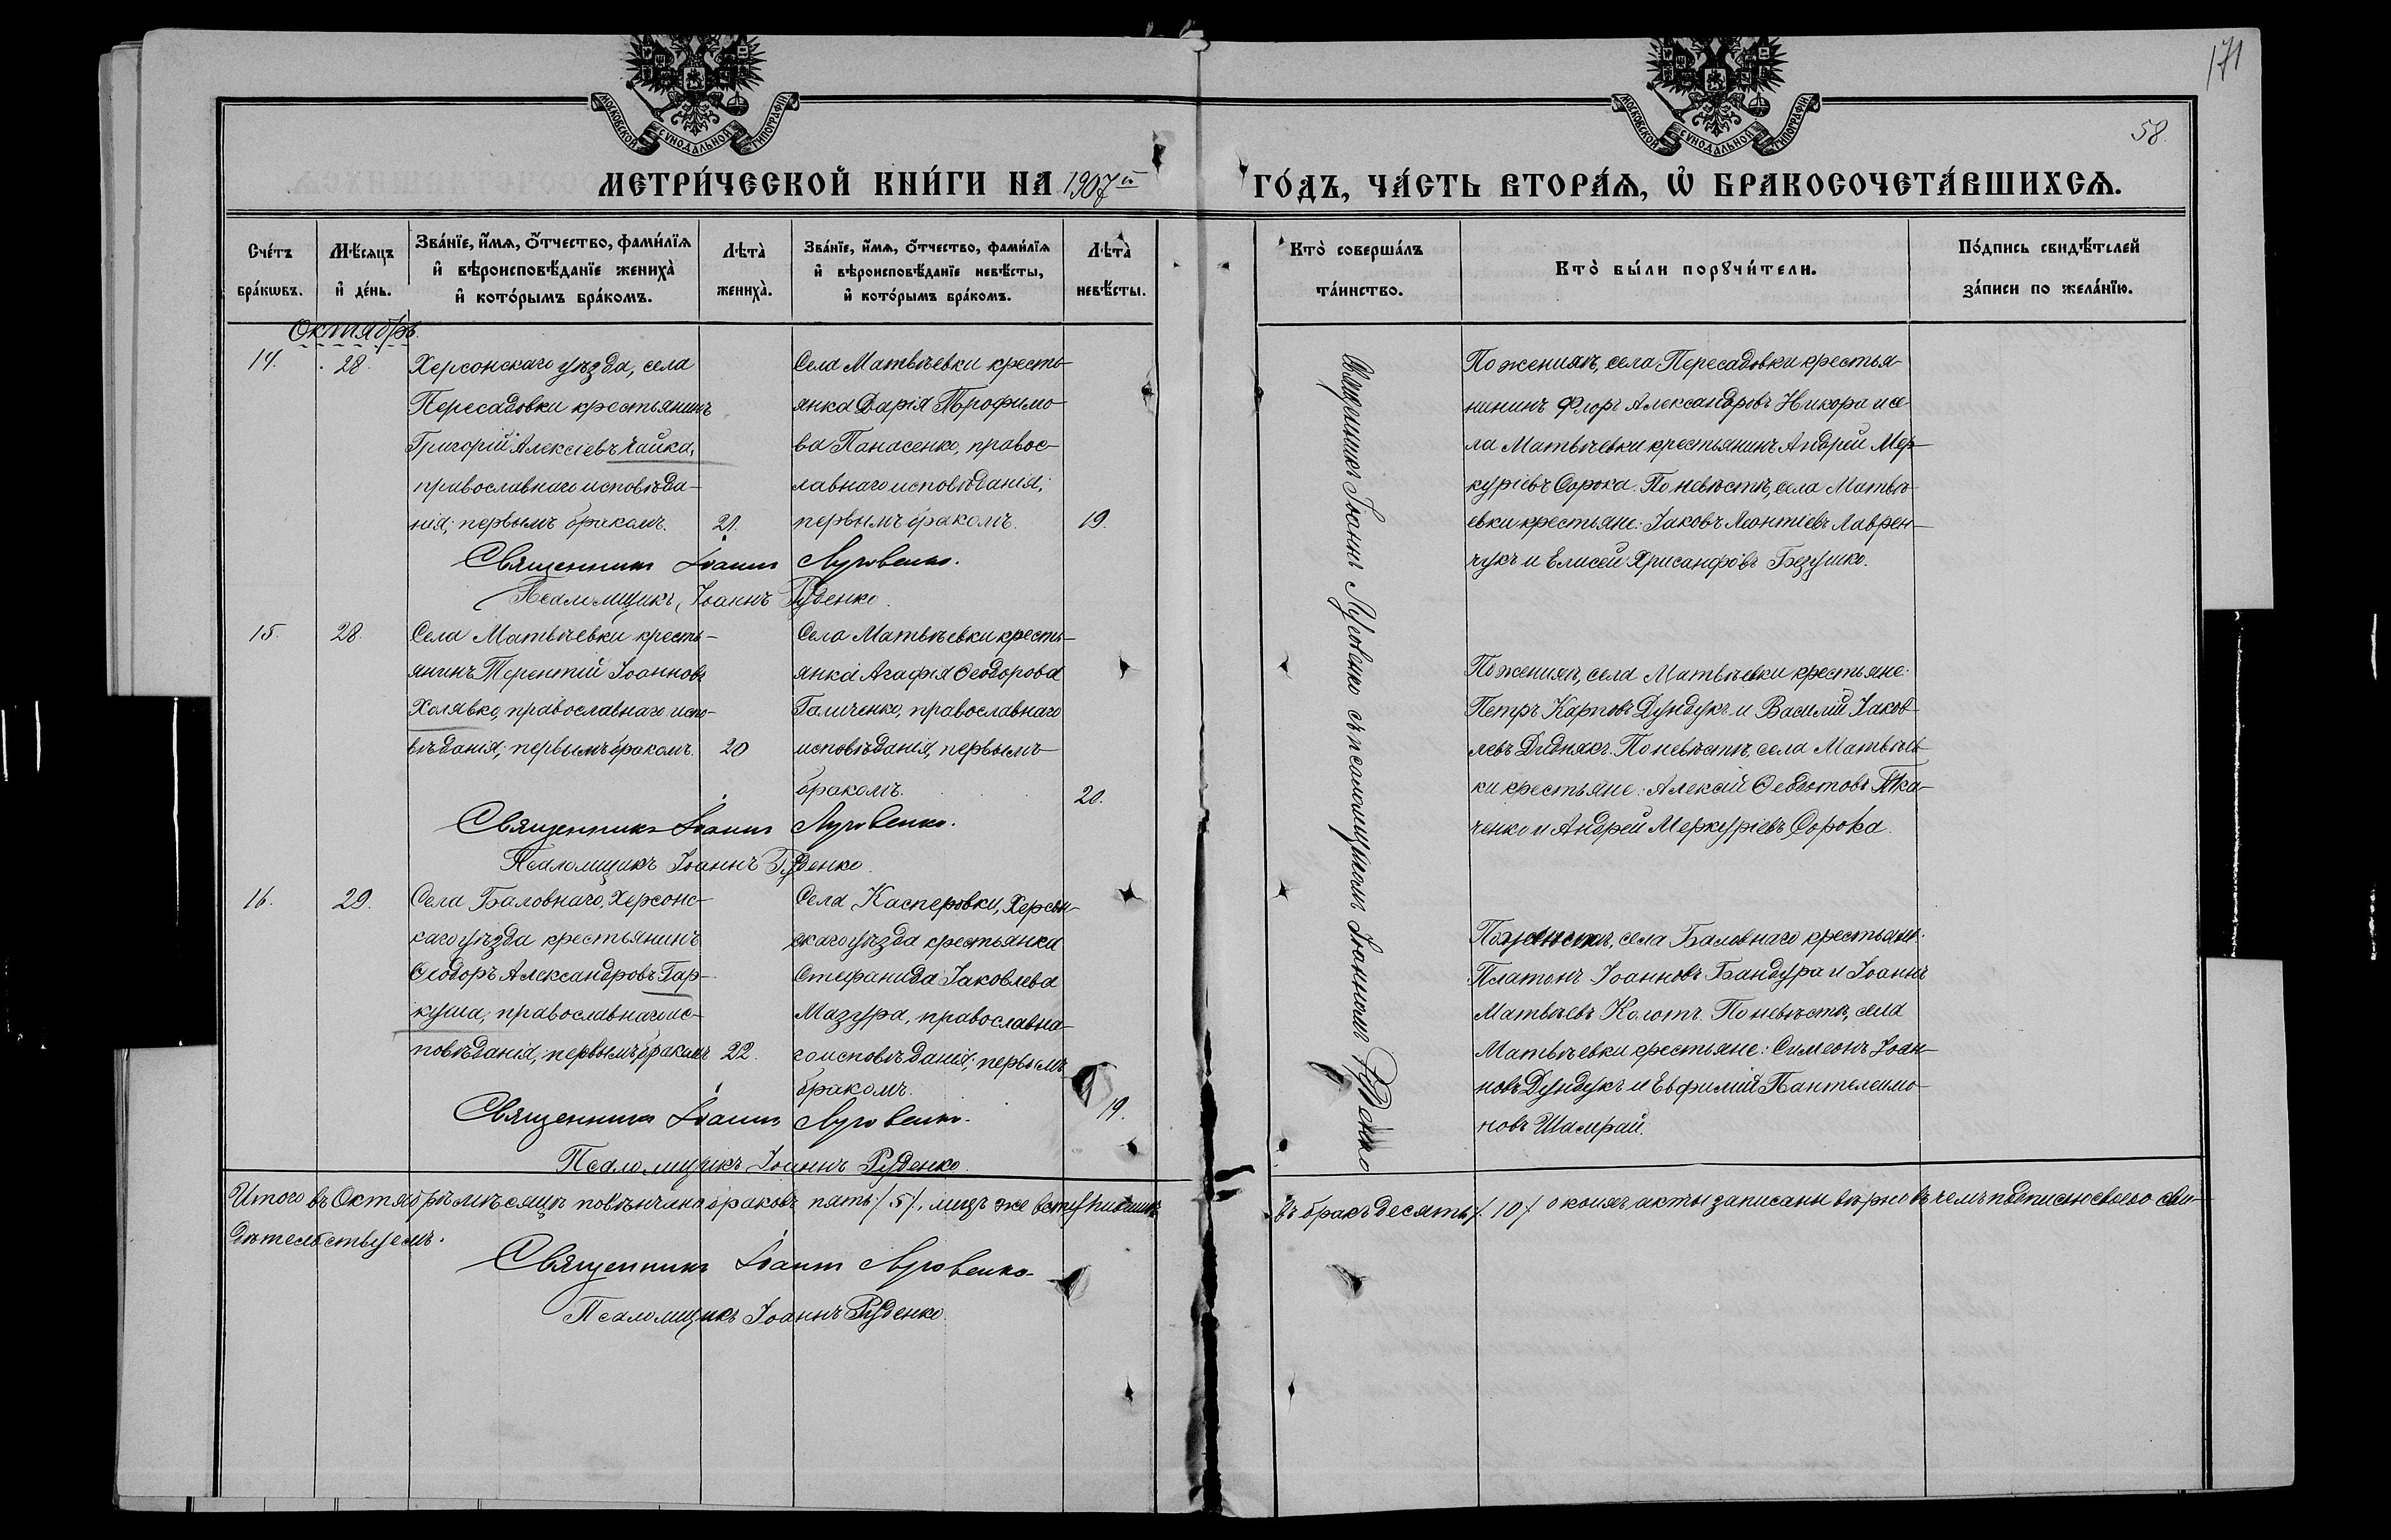 171
58.
МОСКОВСКОЙ СѴНОДАЛЬНОЙ ТИПОГРАФІИ
МОСКОВСКОЙ СѴНОДАЛЬНОЙ ТИПОГРАФІИ
МЕТРИ́ЧЕСКОЙ КНИ́ГИ НА 1907 й ГО́ДЪ, ЧА́СТЬ ВТОРА́Ѧ, Ѡ҆ БРАКОСОЧЕТА́ВШИХСѦ.
Сче́тъ бра́кѡвъ.
Мѣ́сѧцъ и҆ де́нь.
Зва́нїе, и҆́мѧ, ѻ҆́тчество, фами́лїѧ и҆ вѣроисповѣ́данїе жениха̀ и҆ кото́рымъ бра́комъ.
Лѣта̀ жениха̀.
Зва́нїе, и҆́мѧ, ѻ҆́тчество, фами́лїѧ и҆ вѣроисповѣ́данїе невѣ́сты, и҆ кото́рымъ бра́комъ.
Лѣта̀ невѣ́сты.
Кто̀ соверша́лъ та́инство.
Кто̀ бы́ли порꙋчи́тели.
По́дпись свидѣ́телей за́писи по жела́нїю.
Октябрь.
14.
28.
Херсонскаго уѣзда, села
Пересадовки крестьянинъ
Григорій Алексіевъ Чайка,
православнаго исповѣда-
нія; первымъ бракомъ.
21.
Села Матвѣевки кресть-
янка Дарія Трофимо-
ва Панасенко, правос-
лавнаго исповѣданія;
первымъ бракомъ.
19.
Священникъ Іоаннъ Луговенко.
Псаломщикъ, Іоаннъ Руденко.
Священникъ Іоаннъ Луговенко съ псаломщикомъ Іоанномъ Руденко
По женихѣ, села Пересадовки крестья-
нинъ Флоръ Александровъ Никора и се-
ла Матвѣевки крестьянинъ Андрей Мер-
куріевъ Сорока. По невѣстѣ, села Матвѣ-
евки крестьяне: Іаковъ Леонтіевъ Лаврен-
чукъ и Елисей Хрисанфовъ Безушко.
15.
28.
Села Матвѣевки кресть-
янинъ Терентій Іоанновъ
Холявко, православнаго испо-
вѣданія; первымъ бракомъ.
20
Села Матвѣевки кресть-
янка Агафія Ѳеодорова
Галиченко, православнаго
исповѣданія, первымъ
бракомъ.
20.
Священникъ Іоаннъ Луговенко.
Псаломщикъ Іоаннъ Руденко.
По женихѣ, села Матвѣевки крестьяне:
Петръ Карповъ Дундукъ и Василій Іаков-
левъ Дидпякъ. По невѣстѣ, села Матвѣев-
ки крестьяне: Алексій Ѳеодотовъ Тка-
ченко и Андрей Меркуріевъ Сорока.
16.
29.
Села Баловнаго, Херсонс-
каго уѣзда крестьянинъ
Ѳеодоръ Александровъ Гар-
куша, православнаго ис-
повѣданія, первымъ бракомъ
22.
Села Касперовки, Херсон-
скаго уѣзда крестьянка
Стефанида Іаковлева
Мазура, православна-
го исповѣданія; первымъ
бракомъ.
19.
Священникъ Іоаннъ Луговенко.
Псаломщикъ Іоаннъ Руденко.
По женихѣ, села Баловнаго крестьяне:
Платонъ Іоанновъ Бандура и Іоаннъ
Матвѣевъ Коготъ. По невѣстѣ, села
Матвѣевки крестьяне: Симеонъ Іоан-
новъ Дундукъ и Евфимій Пантелеимо-
новъ Шамрай.
Итого въ Октябрѣ мѣсяцѣ повѣнчано браковъ пять /5/, лицъ же вступившихъ въ бракъ десять /10/ о коихъ акты записаны вѣрно въ чемъ подписью своею сви-
дѣтельствуемъ.
Священникъ Іоаннъ Луговенко.
Псаломщикъ Іоаннъ Руденко.